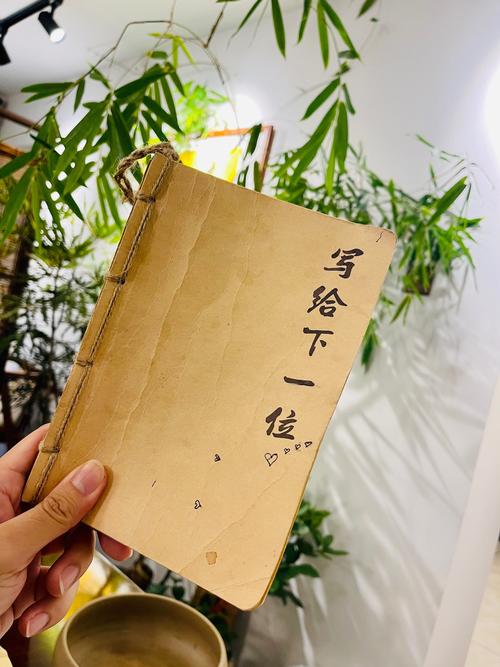 写给下一位